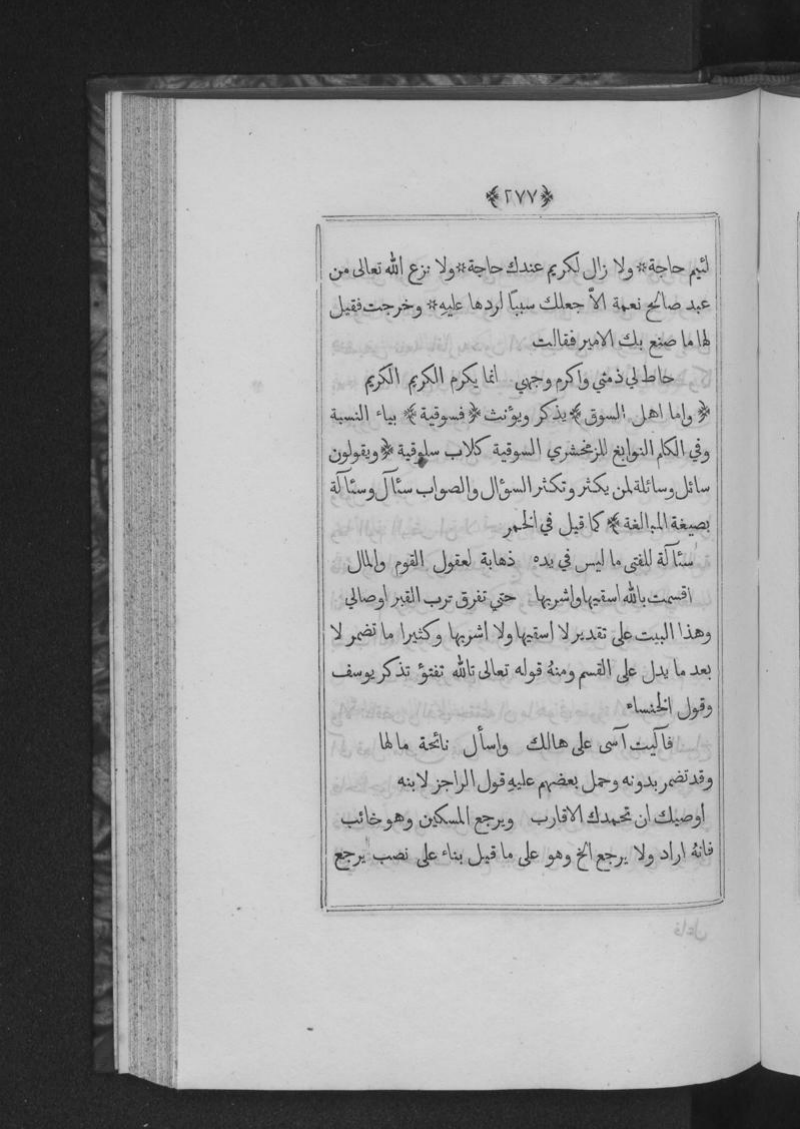 ﴿ ٢٧٧ ﴾
لئيم حاجة * ولا زال لكريم عندك حاجة * ولا نزع الله تعالى من
عبد صالح نعمة الاّ جعلك سببًا لردها عليهِ * وخرجت فقيل
لها ما صنع بك الامير فقالت
حاط لي ذمتي واكرم وجهي انما يكرم الكريم الكريم
﴿ واما اهل السوق ﴾ يذكر ويؤنث ﴿ فسوقية ﴾ بياء النسبة
وفي الكلم النوابغ للزمخشري السوقية كلاب سلوقية ﴿ ويقولون
سائل وسائلة لمن يكثر وتكثر السؤال والصواب سئآل وسئآلة
بصيغة المبالغة ﴾ كما قيل في الخمر
سئآلة للفتى ما ليس في يده ذهابة لعقول القوم والمال
اقسمت بالله اسقيها واشربها حتي تفرق ترب القبر اوصالي
وهذا البيت على تقدير لا اسقيها ولا اشربها وكثيرا ما تضمر لا
بعد ما يدل على القسم ومنهُ قوله تعالى تالله تفتؤ تذكر يوسف
وقول الخنساء
فآليت آسى على هالك واسأل نائحة ما لها
وقد تضمر بدونه وحمل بعضهم عليهِ قول الراجز لابنه
اوصيك ان تحمدك الاقارب ويرجع المسكين وهو خائب
فانهُ اراد ولا يرجع الخ وهو على ما قيل بناء على نصب يرجع